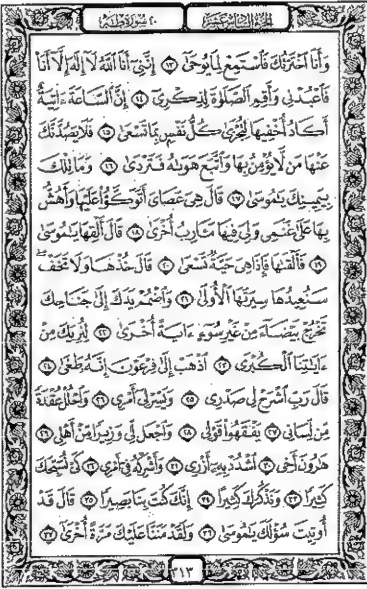 الجزء السادس عشر
٢٠ سورة طه
وَأَنَا ٱخْتَرْتُكَ فَٱسْتَمِعْ لِمَا يُوحَىٰٓ ١٣ إِنَّنِىٓ أَنَا ٱللَّهُ لَآ إِلَٰهَ إِلَّآ أَنَا۠
فَٱعْبُدْنِى وَأَقِمِ ٱلصَّلَوٰةَ لِذِكْرِىٓ ١٤ إِنَّ ٱلسَّاعَةَ ءَاتِيَةٌ
أَكَادُ أُخْفِيهَا لِتُجْزَىٰ كُلُّ نَفْسٍۭ بِمَا تَسْعَىٰ ١٥ فَلَا يَصُدَّنَّكَ
عَنْهَا مَن لَّا يُؤْمِنُ بِهَا وَٱتَّبَعَ هَوَىٰهُ فَتَرْدَىٰ ١٦ وَمَا تِلْكَ
بِيَمِينِكَ يَٰمُوسَىٰ ١٧ قَالَ هِىَ عَصَاىَ أَتَوَكَّؤُا۟ عَلَيْهَا وَأَهُشُّ
بِهَا عَلَىٰ غَنَمِى وَلِىَ فِيهَا مَـَٔارِبُ أُخْرَىٰ ١٨ قَالَ أَلْقِهَا يَٰمُوسَىٰ
١٩ فَأَلْقَىٰهَا فَإِذَا هِىَ حَيَّةٌ تَسْعَىٰ ٢٠ قَالَ خُذْهَا وَلَا تَخَفْ
سَنُعِيدُهَا سِيرَتَهَا ٱلْأُولَىٰ ٢١ وَٱضْمُمْ يَدَكَ إِلَىٰ جَنَاحِكَ
تَخْرُجْ بَيْضَآءَ مِنْ غَيْرِ سُوٓءٍ ءَايَةً أُخْرَىٰ ٢٢ لِنُرِيَكَ مِنْ
ءَايَٰتِنَا ٱلْكُبْرَى ٢٣ ٱذْهَبْ إِلَىٰ فِرْعَوْنَ إِنَّهُۥ طَغَىٰ ٢٤
قَالَ رَبِّ ٱشْرَحْ لِى صَدْرِى ٢٥ وَيَسِّرْ لِىٓ أَمْرِى ٢٦ وَٱحْلُلْ عُقْدَةً
مِّن لِّسَانِى ٢٧ يَفْقَهُوا۟ قَوْلِى ٢٨ وَٱجْعَل لِّى وَزِيرًا مِّنْ أَهْلِى ٢٩
هَٰرُونَ أَخِى ٣٠ ٱشْدُدْ بِهِۦٓ أَزْرِى ٣١ وَأَشْرِكْهُ فِىٓ أَمْرِى ٣٢ كَىْ نُسَبِّحَكَ
كَثِيرًا ٣٣ وَنَذْكُرَكَ كَثِيرًا ٣٤ إِنَّكَ كُنتَ بِنَا بَصِيرًا ٣٥ قَالَ قَدْ
أُوتِيتَ سُؤْلَكَ يَٰمُوسَىٰ ٣٦ وَلَقَدْ مَنَنَّا عَلَيْكَ مَرَّةً أُخْرَىٰٓ ٣٧
٣١٣